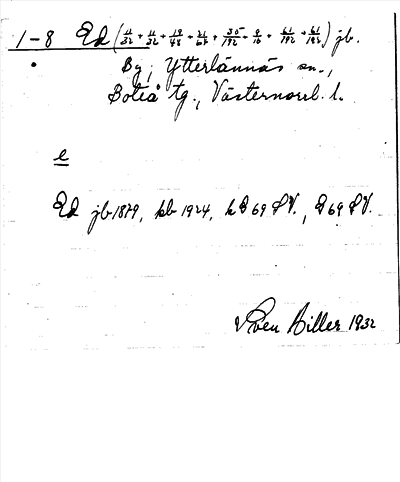 1-8 Ed (11/32 + 11/32 + 19/48 + 21/64 + 35/192 + 9/16 + 61/192 + 61/192) jb.
By, Ytterlännäs sn.,
Boteå tg., Västernorrl. l.
e
Ed jb 1879, kb 1924, k G 69 S V., G 69 S V.
Hiller 1932